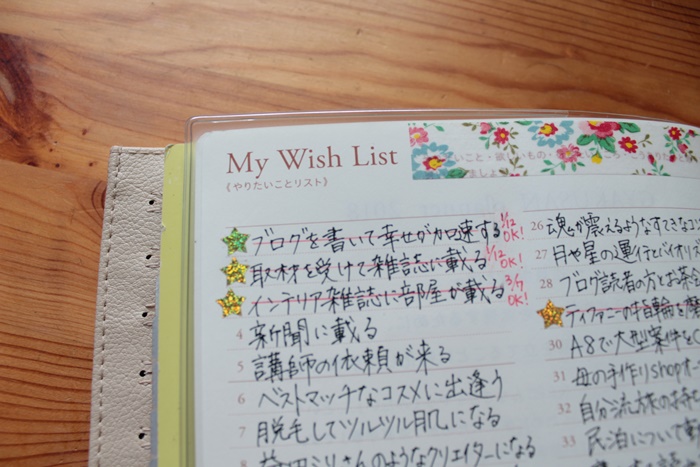 My Wish List
《やりたいことリスト》
ブログを書いて幸せが加速する 1/12 OK!
取材を受けて雑誌に載る 1/12 OK!
インテリア雑誌に部屋が載る 3/7 OK!
4 新聞に載る
5 講師の依頼が来る
6 ベストマッチなコスメに出逢う
7 脱毛してツルツル肌になる
8 益田ミリさんのようなクリエイターになる
26 魂が震えるようなすてきな
27 月や星の運行とバイオリズ
28 ブログ読者の方とお茶
ティファニーの指輪を
30 A8で大型案件を
31 母の手作りshopオー
32 自分流旅のお持
33 民泊について